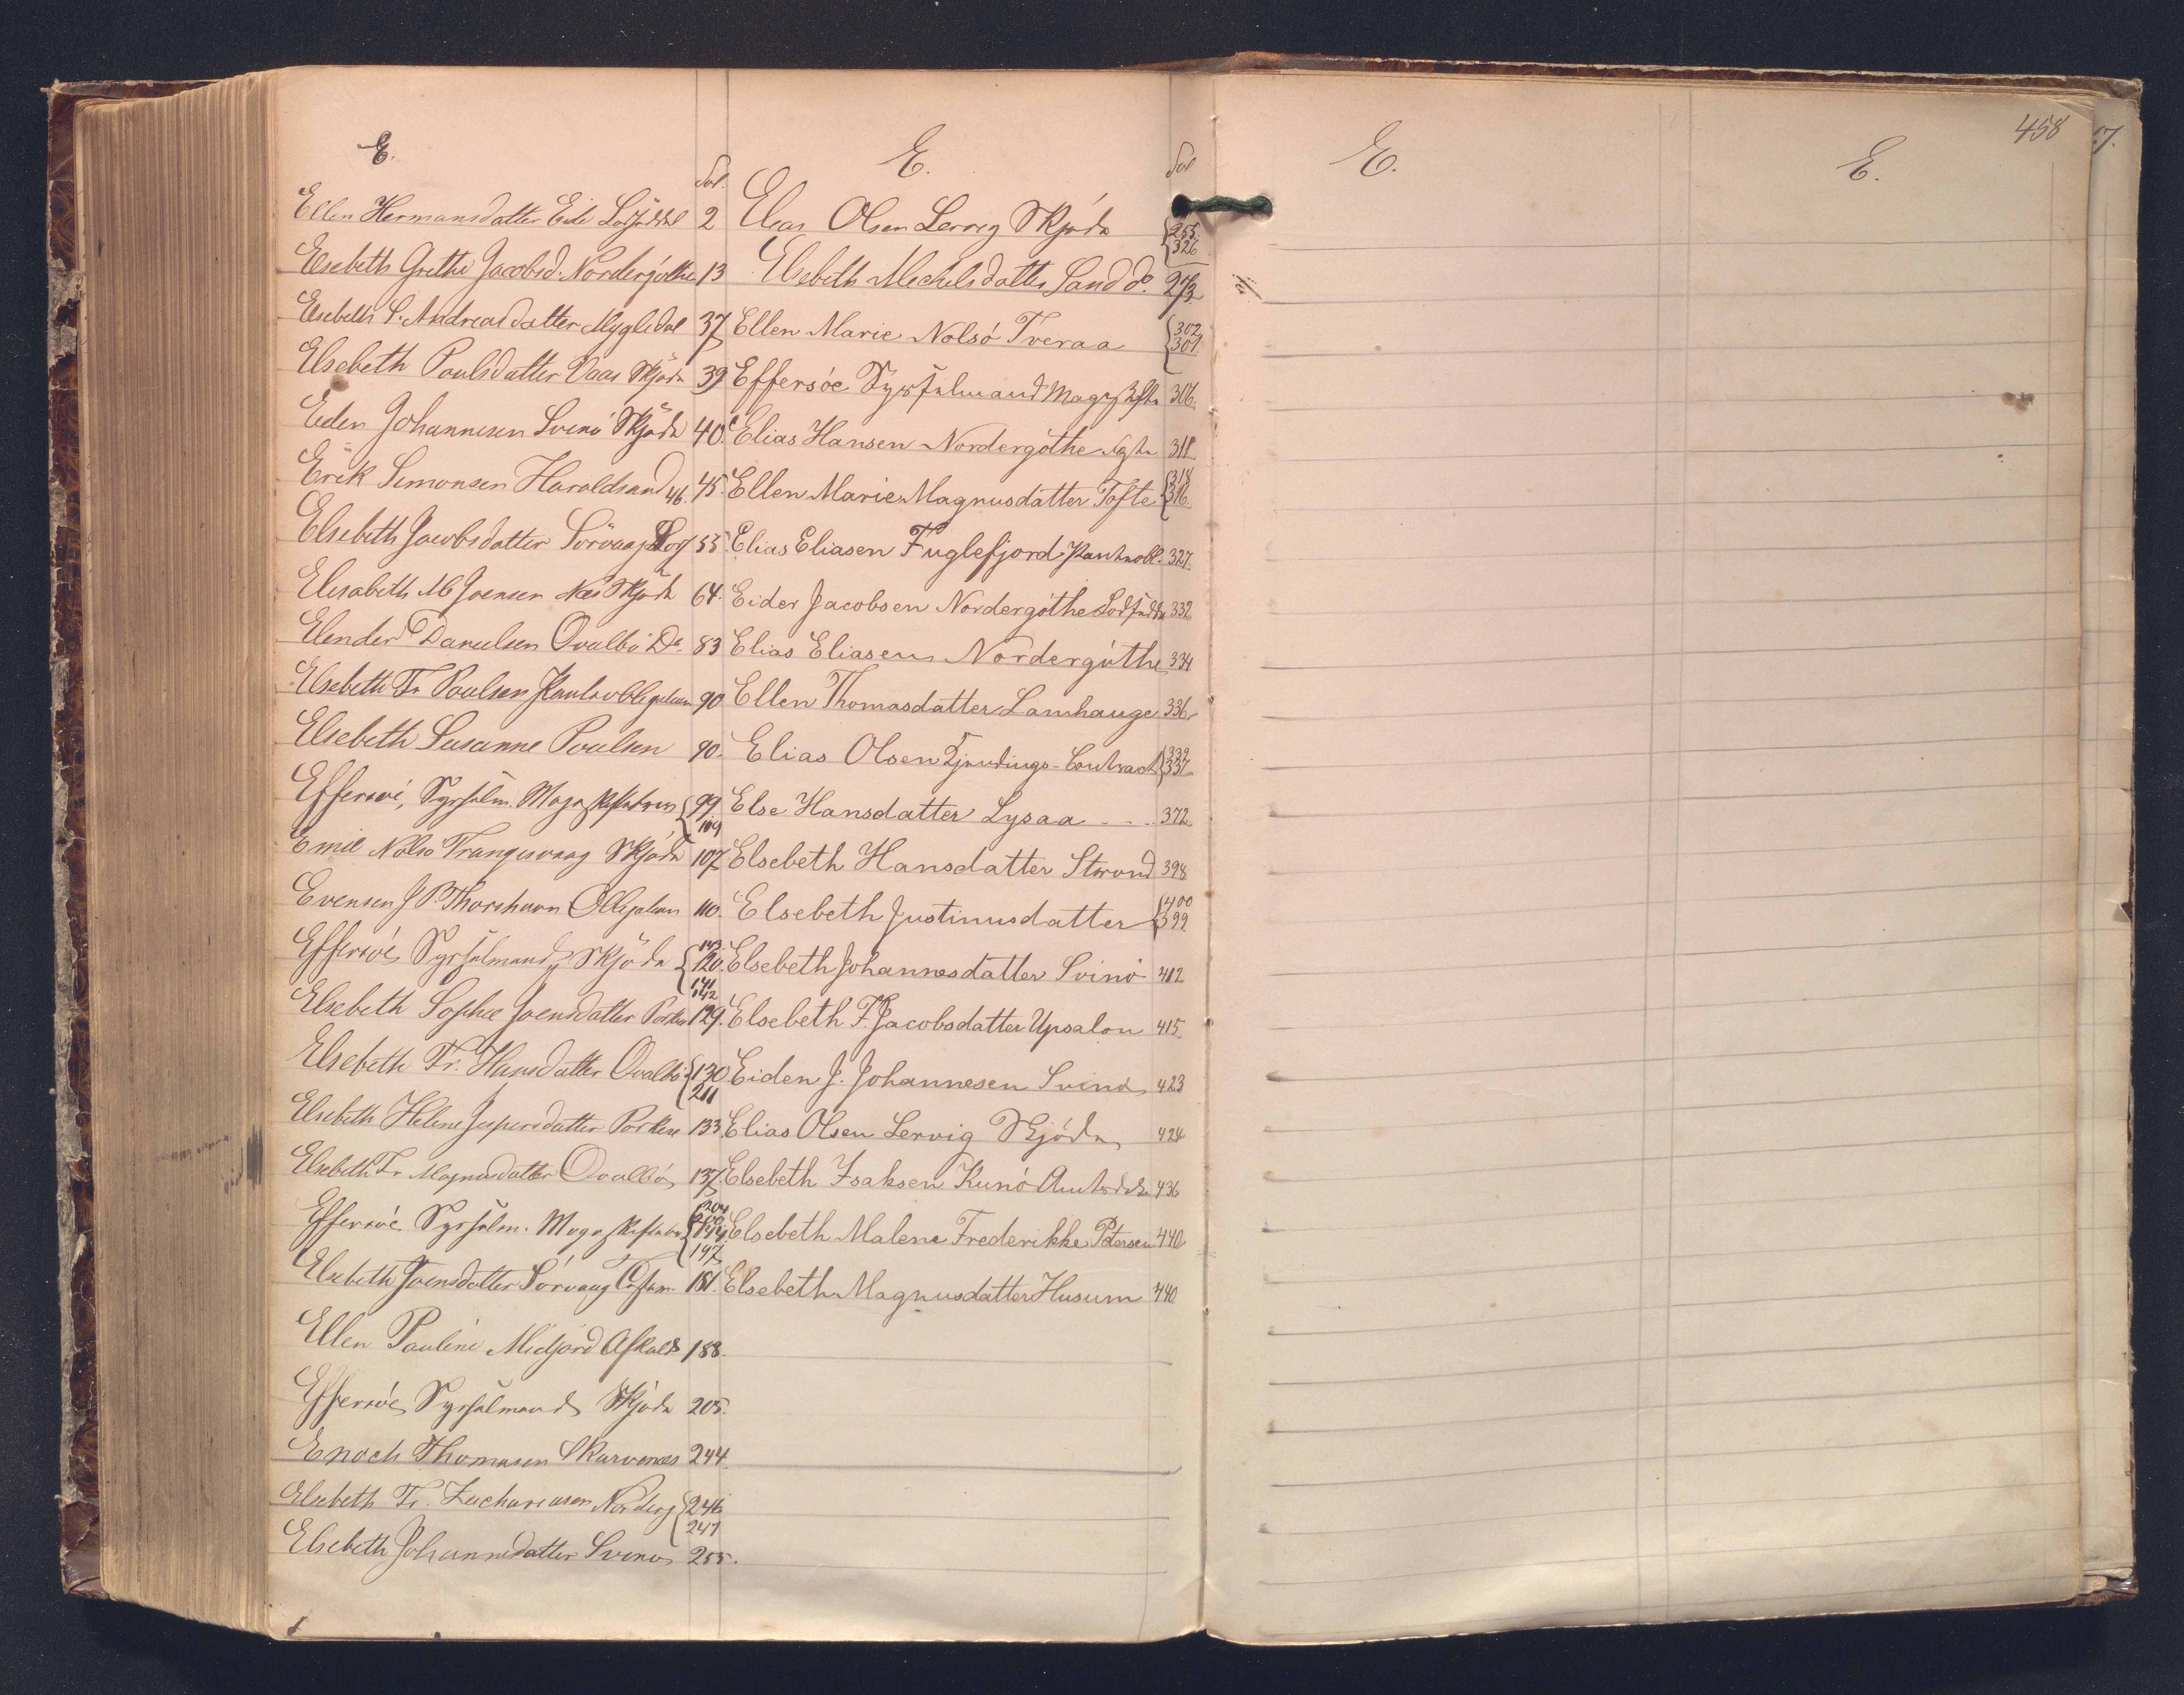 E.
Fol.
Ellen Hermansdatter Eide 2
Elsebeth Grethe Jacobsd. Nordergöthe 13
Elsebeth S. Andreasdatter Mygledal 37
Elsebeth Poulsdatter Vaas Skjöde 39
Eiden Johannesen Svinö Skjöde 40
Erik Simonsen Haraldsund 46. 45.
Elsebeth Jacobsdatter Sörvaag 55
Elisabeth M Joensen Næs Skjöde 64.
Elender Danielsen Qvalbö Do. 83
Elsebeth Fr. Poulsen Pantobligation 90
Elsebeth Susanne Poulsen 90.
Effersöe, Sysselm. 99
109
Emil Nolsö Trangisvaag Skjöde 107
Evensen J P. Thorshavn Obligation 110.
Effersöe Sysselmand, Skjöde 143. 120.
141
142
Elsebeth Sophie Joensdatter Porkere 129.
Elsebeth Fr. Hansdatter Qvalbö 130
211
Elsebeth Helene Jespersdatter Porkere 133
Elsebeth Fr Magnusdatter Qvalbö 137.
Effersöe Sysselm. 204
200
144
147
Elsebeth Joensdatter Sörvaag 181.
Ellen Pauline Midjord Afkald 188.
Effersöe Sysselmand Skjöde 205.
Enoch Thomasen Skarvenæs 244.
Elsebeth Fr. Zachariasen Norderg 246
247
Elsebeth Johannesdatter Svinö 255.
E.
Fol
Elias Olsen Lervig Skjöde 255.
326
Elsebeth Michelsdatter Sand do. 273.
Ellen Marie Nolsö Tveraa 302
301
Effersöe Sysselmand 306.
Elias Hansen Nordergöthe 311
Ellen Marie Magnusdatter Tofte 318
316.
Elias Eliasen Fuglefjord Panteobl. 327.
Eider Jacobsen Nordergöthe 332
Elias Eliasen Nordergöthe 334
Ellen Thomasdatter Lamhauge 336
Elias Olsen Contract 339
337
Else Hansdatter Lysaa - - . 372.
Elsebeth Hansdatter Strond 398
Elsebeth Justinusdatter 400
399
Elsebeth Johannesdatter Svinö 412
Elsebeth F. Jacobsdatter Upsalon 415
Eiden J. Johannesen Svinö 423
Elias Olsen Lervig Skjöde 424
Elsebeth Isaksen Kunö 436
Elsebeth Malene Frederikke Petersen 440
Elsebeth Magnusdatter Husum 440
E.
E.
458
7.